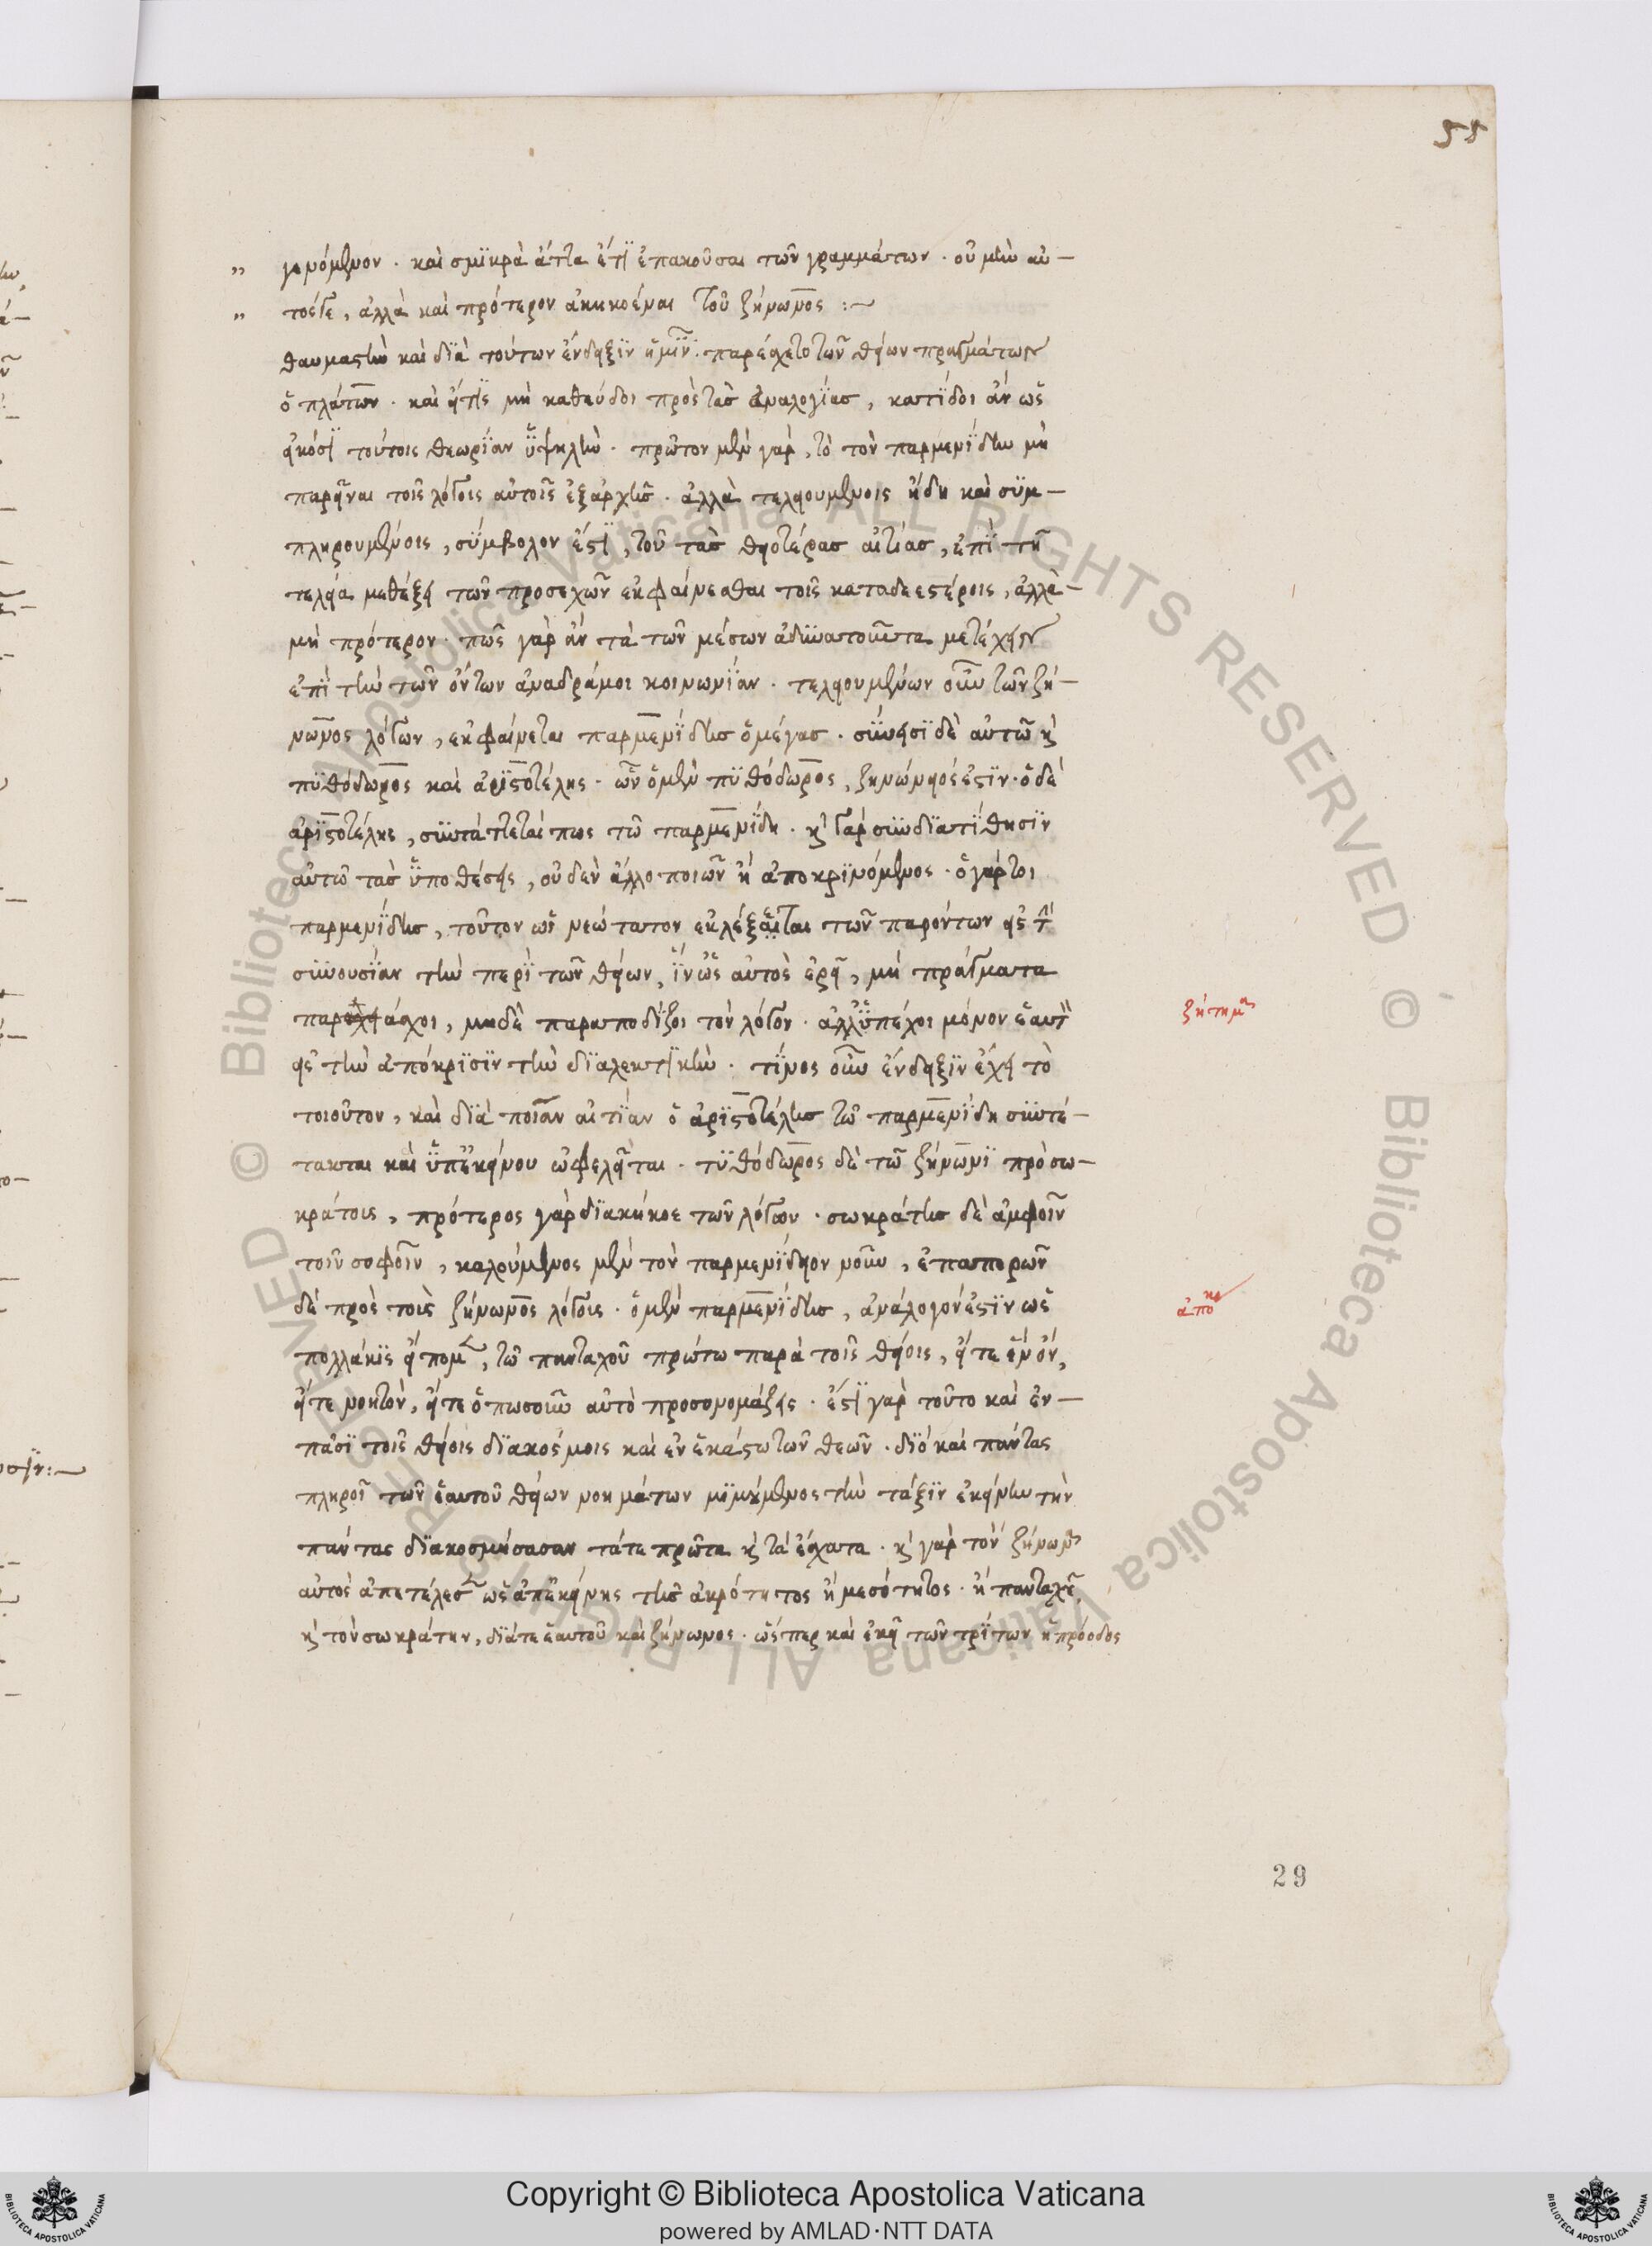 58
γενόμενον · καὶ σμικρὰ ἄττα ἔτι ἐπακοῦσαι τῶν γραμμάτων · οὐ μὴν αὐ-
τόσγε, ἀλλὰ καὶ πρότερον ἀκηκοέναι τοῦ ζήνωνος :~
θαυμαστὴν καὶ διὰ τούτων ἔνδειξιν ἡμῖν παρέχετο τῶν θείων πραγμάτων
ὁ πλάτων · καὶ εἴ τις μὴ καθεύδοι πρὸς τὰς ἀναλογίας, κατίδοι ἂν ὡς
εἰκόσι τούτοις θεωρίαν ὑψηλὴν · πρῶτον μὲν γὰρ, τὸ τὸν παρμενίδην μὴ
παρεῖναι τοῖς λόγοις αὐτοῖς ἐξαρχῆς · ἀλλὰ τελειουμένοις ἤδη καὶ συμ-
πληρουμένοις, σύμβολον ἐστὶ, τοῦ τὰς θειοτέρας αἰτίας, ἐπὶ τῇ
τελείᾳ μεθέξει τῶν προσεχῶν ἐκφαίνεσθαι τοῖς καταδεεστέροις, ἀλλὰ-
μὴ πρότερον · πῶς γὰρ ἂν τὰ τῶν μέσων ἀδυνατοῦντα μετέχειν
ἐπὶ τὴν τῶν ὄντων ἀναδράμοι κοινωνίαν · τελειουμένων οὖν τῶν ζή-
νωνος λόγων, ἐκφαίνεται παρμενίδης ὁ μέγας · σύνεισι δὲ αὐτῷ κ
πυθόδωρος καὶ ἀριστοτέλης · ὧν ὁ μὲν πυθόδωρος, ζηνώνειός ἐστιν · ὁ δὲ
ἀριστοτέλης, συντάττεταί πως τῷ παρμενίδῃ · κ γὰρ συνδιατίθησιν
αὐτῷ τὰς ὑποθέσεις, οὐδὲν ἄλλο ποιῶν ἢ ἀποκρινόμενος · ὁ γάρ τοι
παρμενίδης, τοῦτον ὡς νεώτατον ἐκλέξεται τῶν παρόντων εἰς τ
συνουσίαν τὴν περὶ τῶν θείων, ἵν' ὡς αὐτὸς ἐρεῖ, μὴ πράγματα
παράσχοι, μηδὲ παραποδίζοι τὸν λόγον · ἀλλ' ὑπέχοι μόνον ἑαυτ
ζήτημα
εἰς τὴν ἀπόκρισιν τὴν διαλεκτικὴν · τίνος οὖν ἔνδειξιν ἔχει τὸ
τοιοῦτον, καὶ διὰ ποίαν αἰτίαν ὁ ἀριστοτέλης τῷ παρμενίδῃ συντέ-
τακται καὶ ὑπ' ἐκείνου ὠφελεῖται · πυθόδωρος δὲ τῷ ζήνωνι πρὸ σω-
κράτους, πρότερος γὰρ διακήκοε τῶν λόγων · σωκράτης δὲ ἀμφοῖν
τοῖν σοφοῖν, καλούμενος μὲν τὸν παρμενίδειον νοῦν, ἐπαπορῶν
δὲ πρὸς τοὺς ζήνωνος λόγους · ὁ μὲν παρμενίδης, ἀνάλογόν ἐστιν ὡς
ἀπο
πολλάκις εἴπομ, τῷ πανταχοῦ πρώτῳ παρὰ τοῖς θείοις, εἴτε ἓν ὄν,
εἴτε νοητὸν, εἴτε ὁπωσοῦν αὐτὸ προσονομάζεις · ἔστι γὰρ τοῦτο καὶ ἐν-
πᾶσι τοῖς θείοις διακόσμοις καὶ ἐν ἑκάστῳ τῶν θεῶν · διό καὶ πάντας
πληροῖ τῶν ἑαυτοῦ θείων νοημάτων μιμούμενος τὴν τάξιν ἐκείνην τὴν
πάντας διακοσμήσασαν τά τε πρῶτα κ τὰ ἔσχατα · κ γὰρ τὸν ζήνων
αὐτὸς ἀπετέλεσ ὡς ἀπ' ἐκείνης τῆς ἀκρότητος ἡ μεσότητος · ἡ πανταχοῦ,
κ τὸν σωκράτην, διά τε ἑαυτοῦ καὶ ζήνωνος · ὥσπερ καὶ ἐκεῖ τῶν τρίτων ἡ πρόοδος
29
Copyright © Biblioteca Apostolica Vaticana
powered by AMLAD·NTT DATA